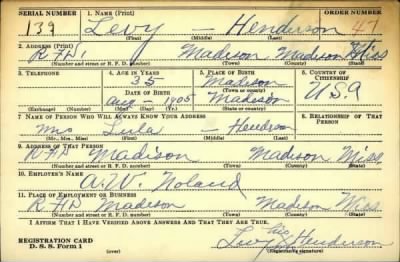 SERIAL NUMBER 1. NAME (Print) ORDER NUMBER
139 Levy — Henderson 47
(First) (Middle) (Last)
2. ADDRESS (Print)
RFD1 Madison Madison Miss
(Number and street or R. F. D. number) (Town) (County) (State)
3. TELEPHONE 4. AGE IN YEARS 5. PLACE OF BIRTH 6. COUNTRY OF CITIZENSHIP
35 Madison
DATE OF BIRTH (Town or county)
Aug — 1905 Madison U.S.A
(Exchange) (Number) (Mo.) (Day) (Yr.) (State or country)
7. NAME OF PERSON WHO WILL ALWAYS KNOW YOUR ADDRESS 8. RELATIONSHIP OF THAT PERSON
Mrs Lula — Henderson
(Mr., Mrs., Miss) (First) (Middle) (Last)
9. ADDRESS OF THAT PERSON
RFD Madison Madison Miss
(Number and street or R. F. D. number) (Town) (County) (State)
10. EMPLOYER'S NAME
A.W. Noland
11. PLACE OF EMPLOYMENT OR BUSINESS
RFD Madison Madison Miss
(Number and street or R. F. D. number) (Town) (County) (State)
I AFFIRM THAT I HAVE VERIFIED ABOVE ANSWERS AND THAT THEY ARE TRUE.
REGISTRATION CARD
D. S. S. Form 1 (over) Levy Henderson
(Registrant's signature)